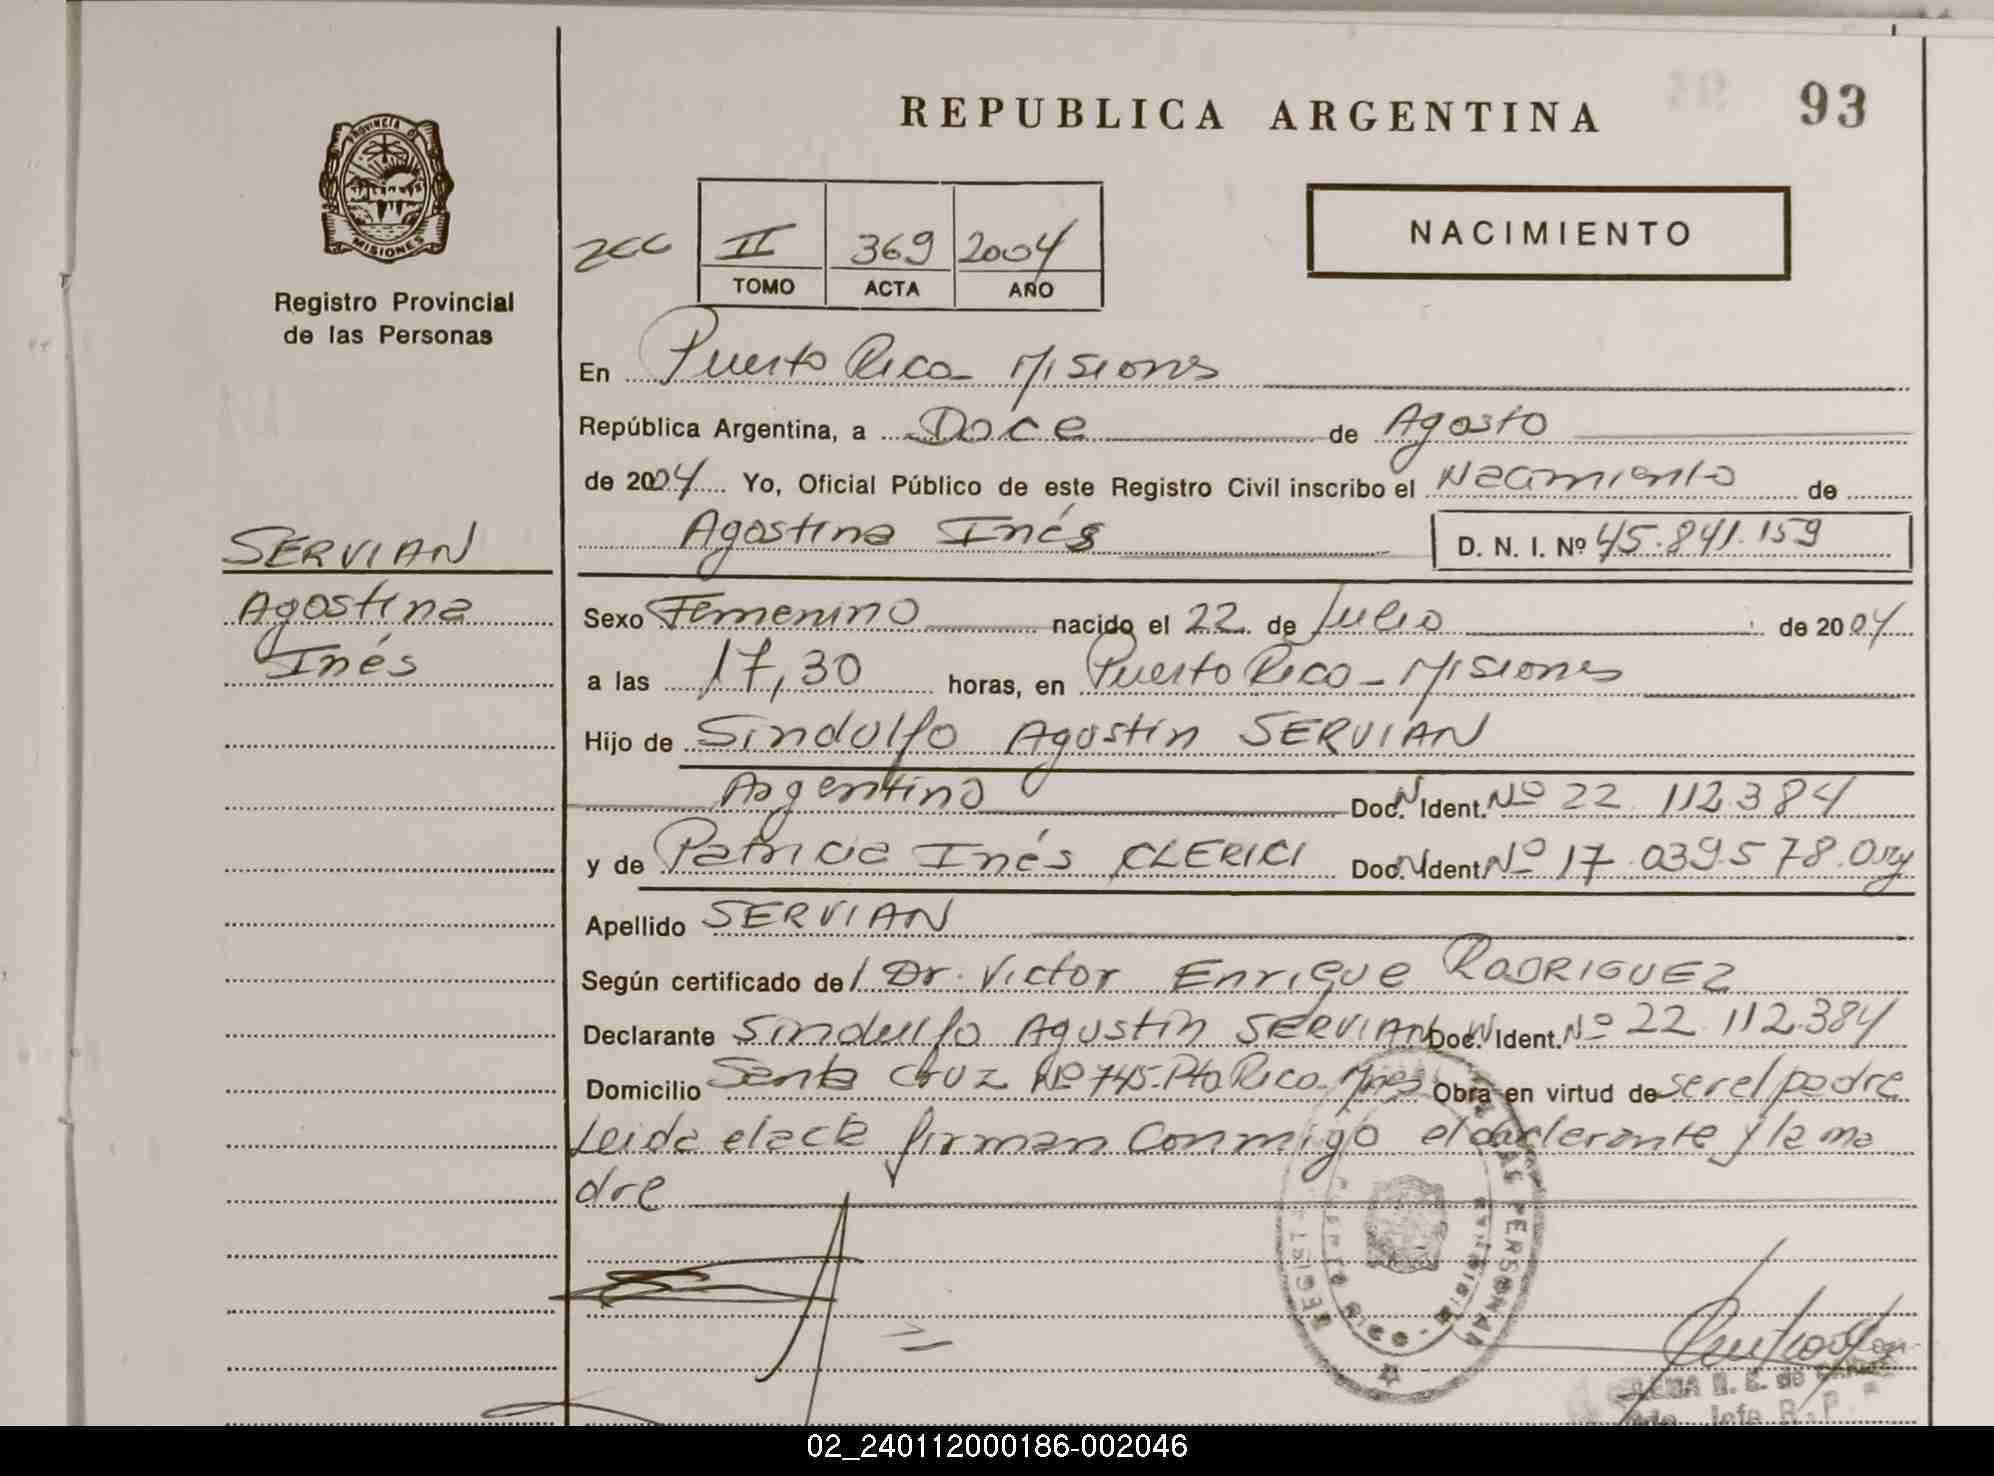 REPUBLICA ARGENTINA
93
PROVINCIA D
MISIONES
Registro Provincial
de las Personas
II 369 2004
TOMO ACTA AÑO
NACIMIENTO
En Puerto Rico - Misiones
República Argentina, a Doce de Agosto
de 2004 Yo, Oficial Público de este Registro Civil inscribo el Nacimiento de
Agostina Inés D. N. I. Nº 45.841.159
SERVIAN
Agostina
Inés
Sexo Femenino nacido el 22 de Julio de 2004
a las 17,30 horas, en Puerto Rico - Misiones
Hijo de Sindulfo Agustín SERVIAN
Argentino Doc. N Ident. Nº 22.112.384
y de Patricia Inés CLERICI Doc. N Ident. Nº 17.039.578. Arg
Apellido SERVIAN
Según certificado de Dr. Victor Enrique RODRIGUEZ
Declarante Sindulfo Agustín SERVIAN Doc. N Ident. Nº 22.112.384
Domicilio Santa Cruz Nº 745- Pto Rico - Mnes Obra en virtud de ser el padre
Leida el acta firman conmigo el declarante y la ma
dre
02_240112000186-002046